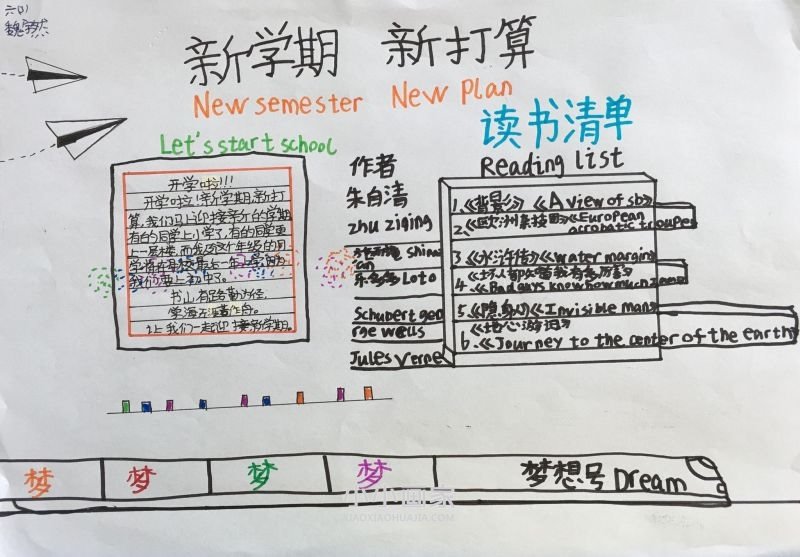 六(1)
魏
新学期 新打算
New semester New Plan
Let's start school
读书清单
Reading list
开学啦!!!
开学啦!新学期,新打
算,我们马上迎接新的学期
有的同学上小学了,有的同学更
上一层楼,
我们要上初中了。
书山有路勤为径,
学海无涯苦作舟。
让我们一起迎接新学期。
作者
朱自清
zhu ziqing
施耐庵 shinai
an
乐多多 Loto
Schubert geo
rge wells
Jules Verne
1.《背影》《A view of sb》
2.《欧洲杂技团》《European
acrobatic troupe》
3.《水浒传》《water margin》
《坏人都知道我有多厉害》
4.《Bad guys know how much
5.《隐身人》《Invisible man》
《地心游记》
6.《Journey to the center of the earth》
梦 梦 梦 梦 梦想号 Dream
小小画家
XIAOXIAOHUAJIA.COM